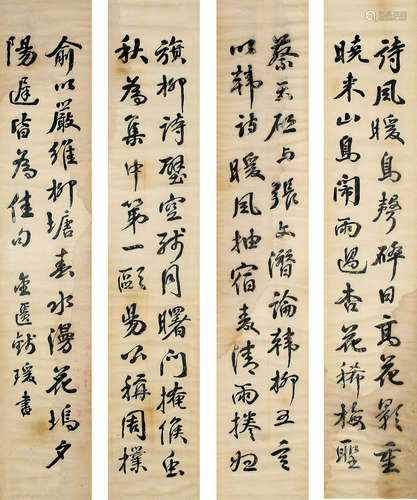 詩風暖鳥聲碎日高花影重
曉來山鳥鬧雨過杏花稀梅聖
蔡天啟与張文潛論韓柳五言
以韓詩暖風抽宿麦清雨捲歸
旗柳詩壁空殘月曙門掩候虫
秋為集中第一歐陽公稱周樸
俞以嚴維柳塘春水漫花塢夕
陽遲皆為佳句 金匱錢瑗書